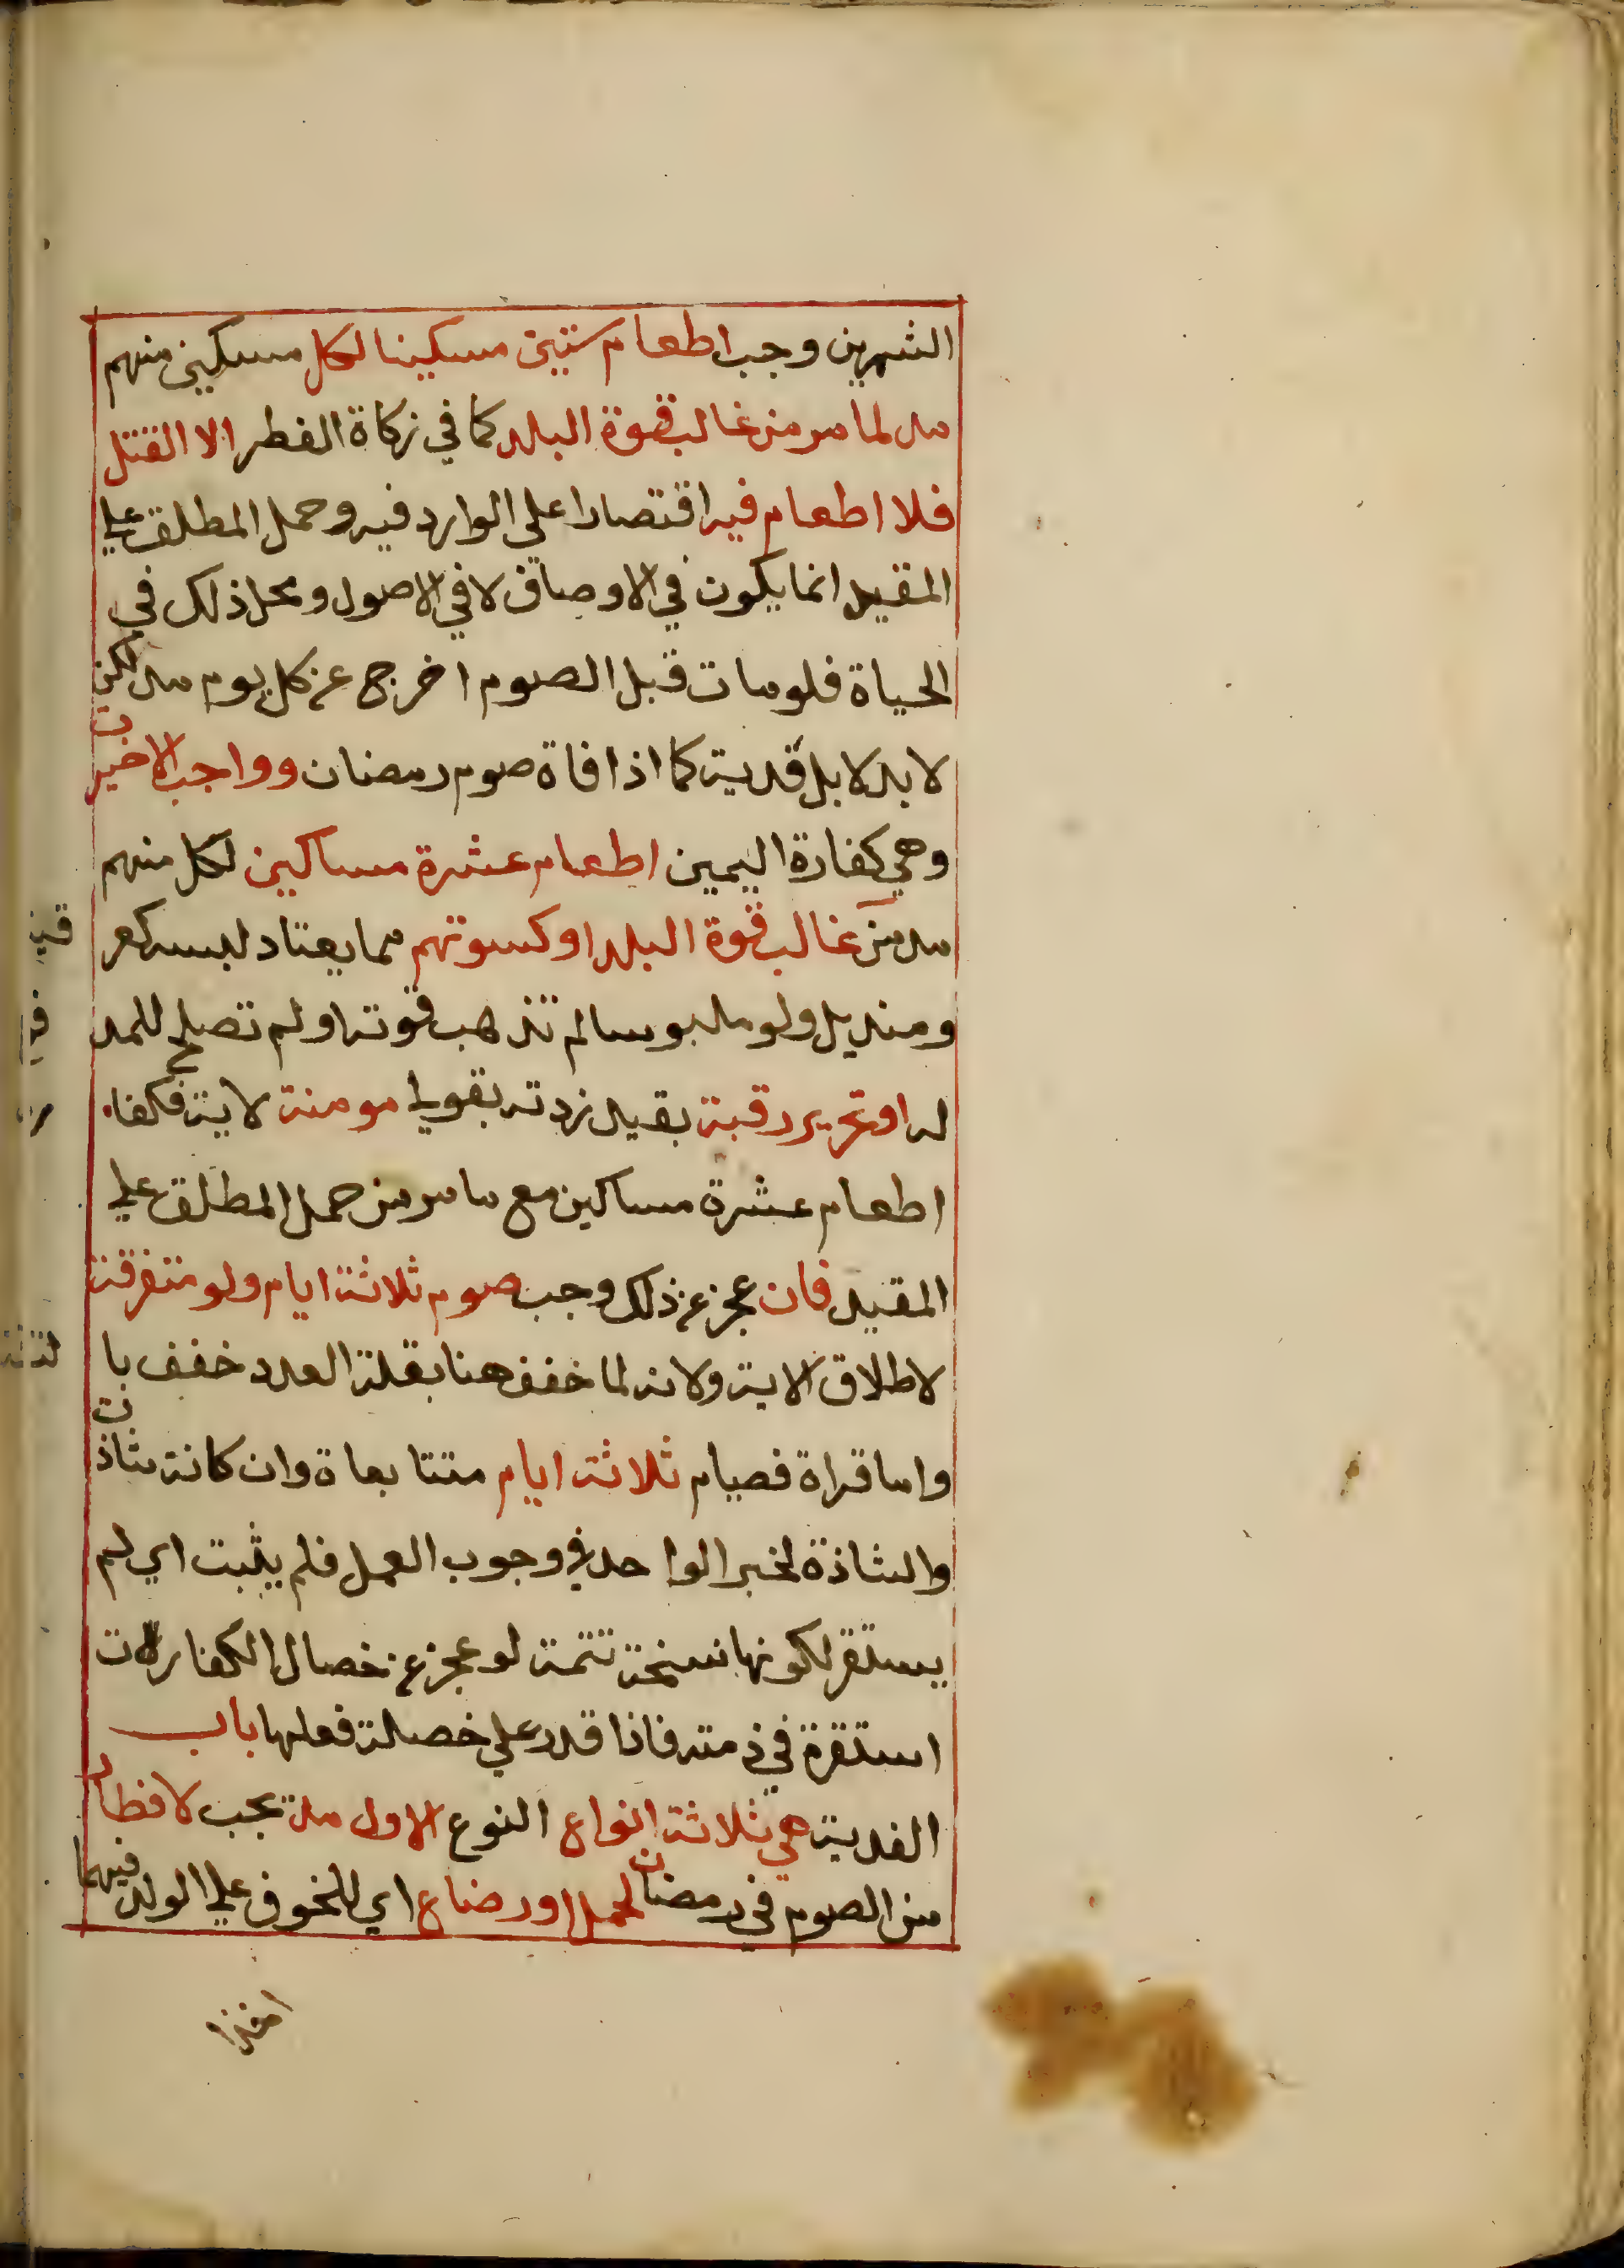 الشهرين وجب اطعام ستين مسكينا لكل مسكين منهم
مد لما مر من غالب قوة البلد كما في زكاة الفطر الا القتل
فلا اطعام فيه اقتصارا على الوارد فيه وحمل المطلق علي
المقيد انما يكون في الاوصاف لا في الاصول ومحل ذلك في
الحياة فلو مات قبل الصوم اخرج عن كل يوم مد لكن
لا بدلا بل فدية كما اذا فاة صوم رمضان وواجب الاخيرة
وهي كفارة اليمين اطعام عشرة مساكين لكل منهم
مد من غالب قوة البلد او كسوتهم مما يعتاد لبسه كعر
ومنديل ولو ملبوسا لم تذهب قوته او لم تصلح للمد
له او تحرير رقبة بقيد زدته بقولي مومنة لاية فكفا
اطعام عشرة مساكين مع ما مر من حمل المطلق علي
المقيد فان عجز عن ذلك وجب صوم ثلاثة ايام ولو متفرقة
لاطلاق الاية ولانه لما خفف هنا بقلة العدد خفف با
واما قراة فصيام ثلاثة ايام متتابعاة وان كانة شاذة
والشاذة لخبر الواحد في وجوب العمل فلم يثبت اي لم
يستقر لكونها نسخة تتمة لو عجز عن خصال الكفارات
استقرة في ذمته فاذا قدر علي خصلة فعلها باب
الفدية هي ثلاثة انواع النوع الاول مد يجب لافطار
من الصوم في رمضان لحمل او رضاع اي للخوف علي الولد فيهما